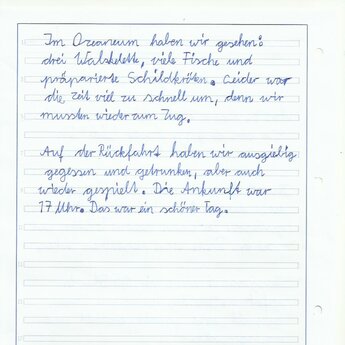 Im Ozeaneum haben wir gesehen:
drei Walskelette, viele Fische und
präparierte Schildkröten. Leider war
die Zeit viel zu schnell um, denn wir
mussten wieder zum Zug.
Auf der Rückfahrt haben wir ausgiebig
gegessen und getrunken, aber auch
wieder gespielt. Die Ankunft war
17 Uhr. Das war ein schöner Tag.